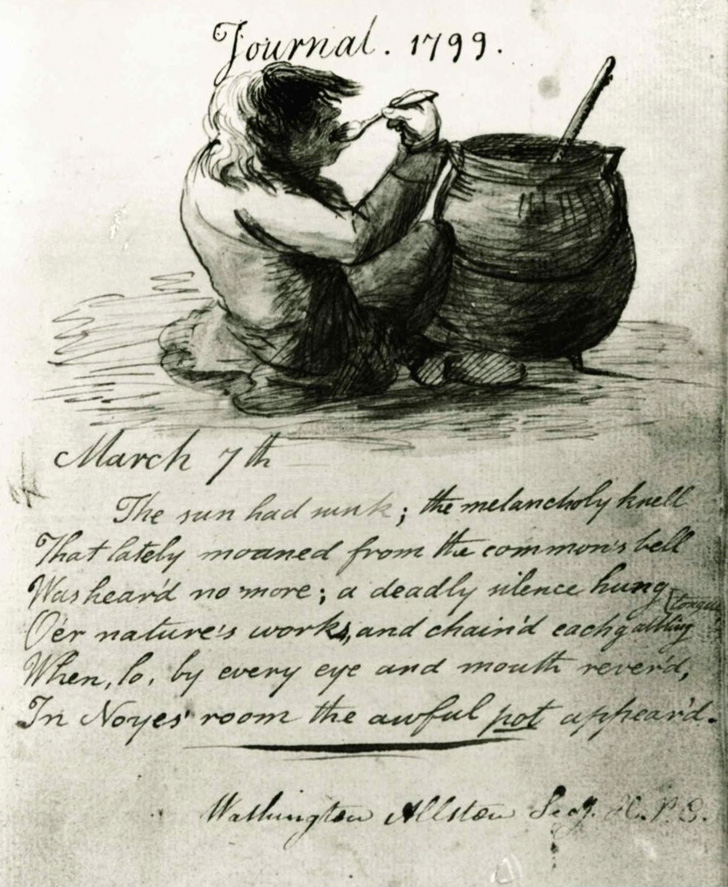 Journal. 1799.
March 7th
The sun had sunk; the melancholy knell
That lately moaned from the common's bell
Was heard no more; a deadly silence hung
O'er nature's works, and chain'd each
tongue
When, lo, by every eye and mouth rever'd,
In Noyes' room the awful pot appear'd.
Washington Allston Secy. H. P. C.